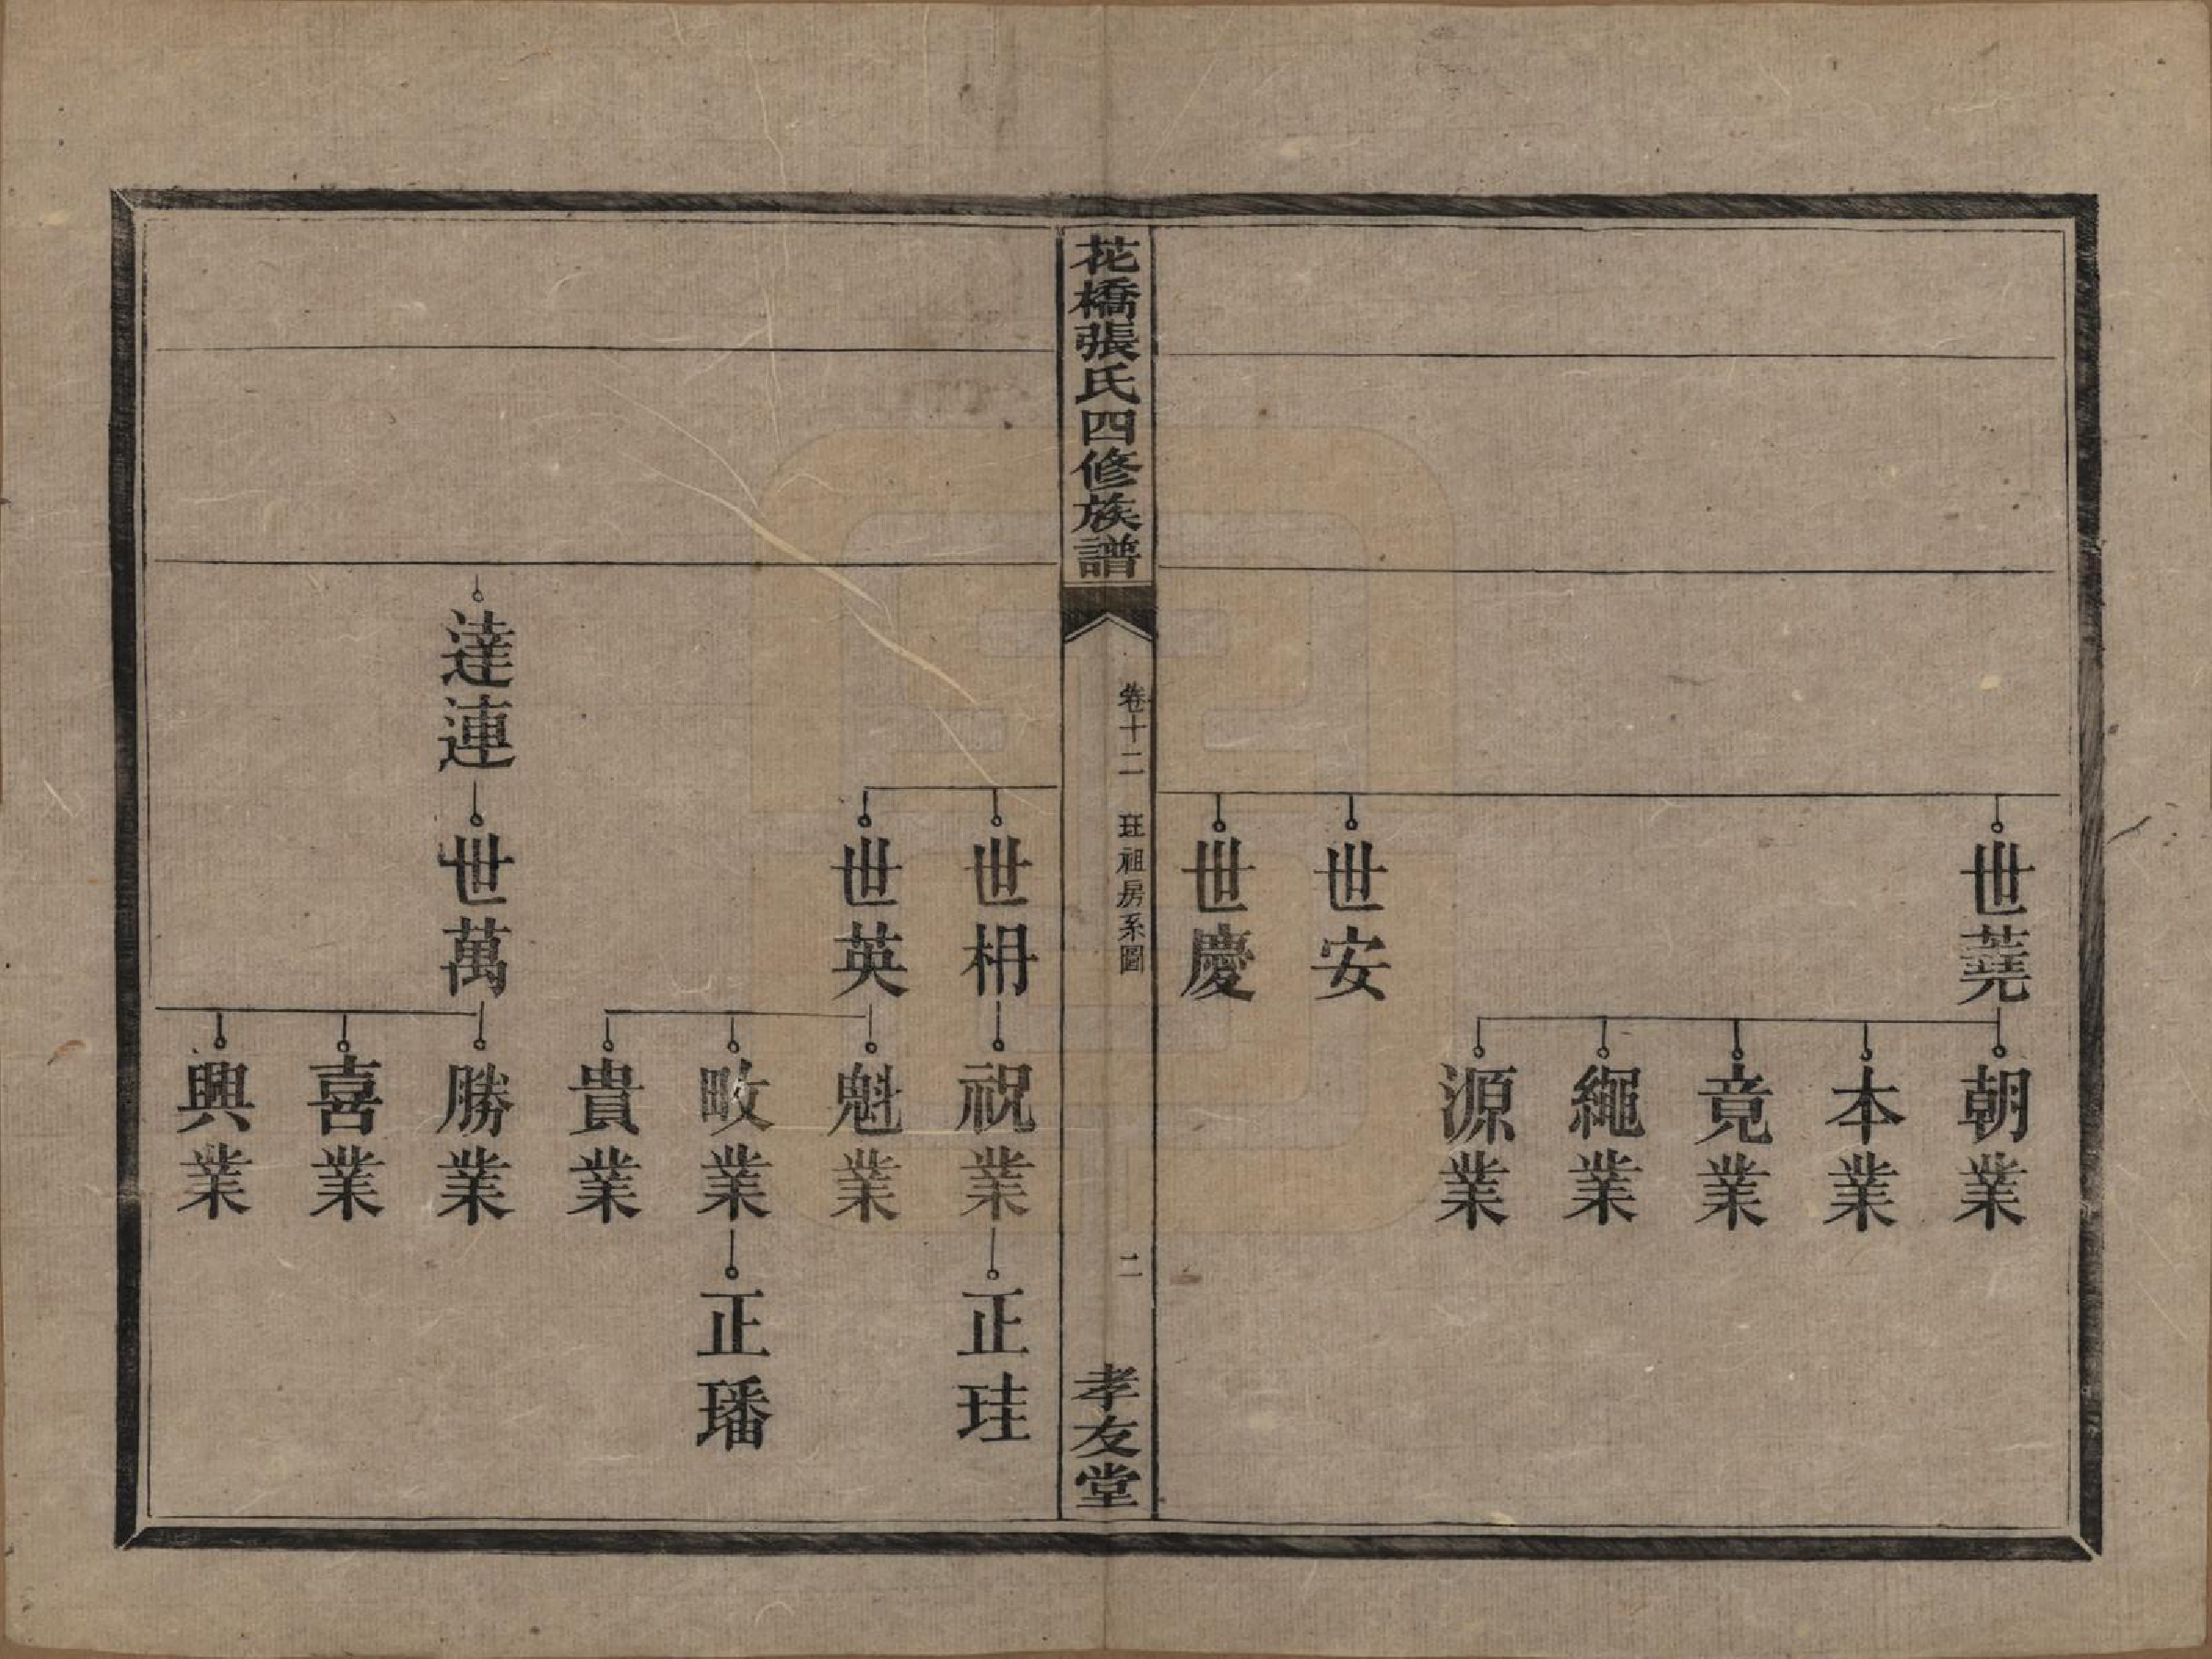 世蕘
朝業
本業
竟業
繩業
源業
世安
世慶
花橋張氏四修族譜
卷十二 玨祖房系圖
二
孝友堂
世枬
祝業
正珪
世英
魁業
畋業
正璠
貴業
達連
世萬
勝業
喜業
興業